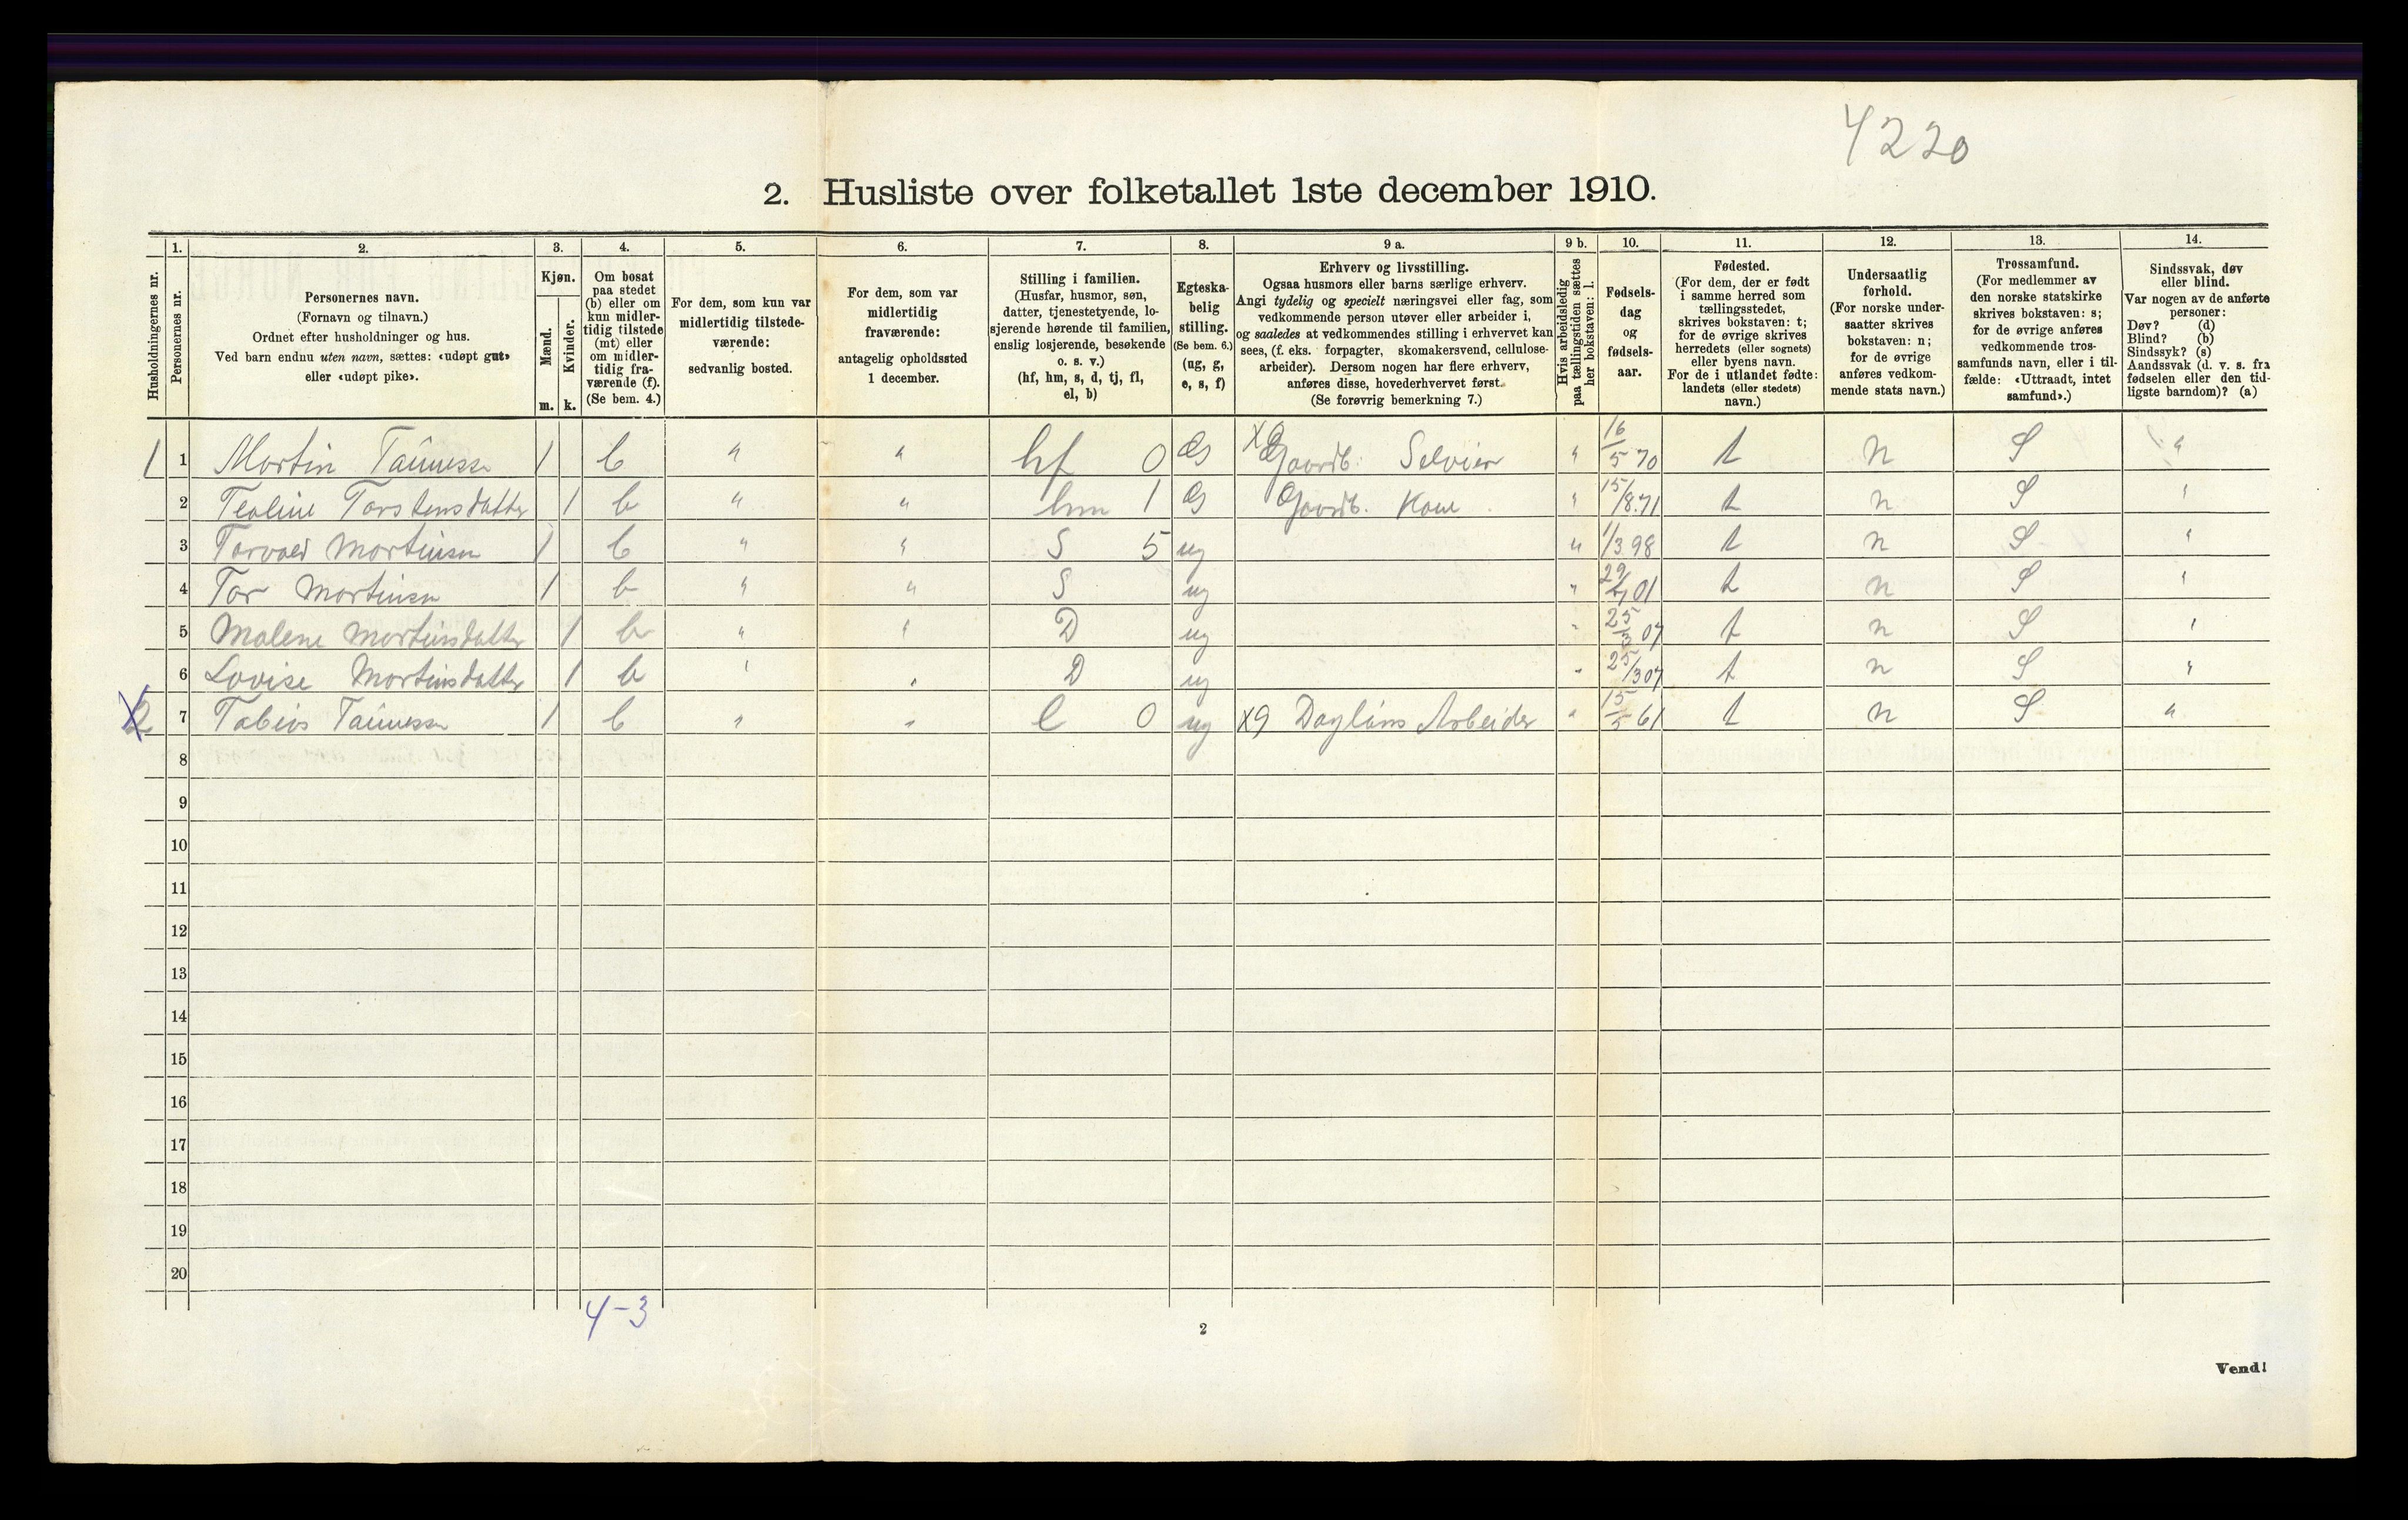 4220
2. Husliste over folketallet 1ste december 1910.
Husholdningernes nr.
1.
Personernes nr.
2.
Personernes navn.
(Fornavn og tilnavn.)
Ordnet efter husholdninger og hus.
Ved barn endnu uten navn, sættes: «udøpt gut»
eller «udøpt pike».
3.
Kjøn.
Mænd.
m.
Kvinder.
k.
4.
Om bosat
paa stedet
(b) eller om
kun midler-
tidig tilstede
(mt) eller
om midler-
tidig fra-
værende (f).
(Se bem. 4.)
5.
For dem, som kun var
midlertidig tilstede-
værende:
sedvanlig bosted.
6.
For dem, som var
midlertidig
fraværende:
antagelig opholdssted
1 december.
7.
Stilling i familien.
(Husfar, husmor, søn,
datter, tjenestetyende, lo-
sjerende hørende til familien,
enslig losjerende, besøkende
o. s. v.)
(hf, hm, s, d, tj, fl,
el, b)
8.
Egteska-
belig
stilling.
(Se bem. 6.)
(ug, g,
e, s, f)
9 a.
Erhverv og livsstilling.
Ogsaa husmors eller barns særlige erhverv.
Angi tydelig og specielt næringsvei eller fag, som
vedkommende person utøver eller arbeider i,
og saaledes at vedkommendes stilling i erhvervet kan
sees, (f. eks. forpagter, skomakersvend, cellulose-
arbeider). Dersom nogen har flere erhverv,
anføres disse, hovederhvervet først.
(Se forøvrig bemerkning 7.)
9 b.
Hvis arbeidsledig
paa tællingstiden sættes
her bokstaven: l.
10.
Fødsels-
dag
og
fødsels-
aar.
11.
Fødested.
(For dem, der er født
i samme herred som
tællingsstedet,
skrives bokstaven: t;
for de øvrige skrives
herredets (eller sognets)
eller byens navn.
For de i utlandet fødte:
landets (eller stedets)
navn.)
12.
Undersaatlig
forhold.
(For norske under-
saatter skrives
bokstaven: n;
for de øvrige
anføres vedkom-
mende stats navn.)
13.
Trossamfund.
(For medlemmer av
den norske statskirke
skrives bokstaven: s;
for de øvrige anføres
vedkommende tros-
samfunds navn, eller i til-
fælde: «Uttraadt, intet
samfund».)
14.
Sindssvak, døv
eller blind.
Var nogen av de anførte
personer:
Døv? (d)
Blind? (b)
Sindssyk? (s)
Aandssvak (d. v. s. fra
fødselen eller den tid-
ligste barndom)? (a)
1 1 Martin 1 b " " hf 0 G Gaardb. Selveier " 16/5 70 t n S "
2 Tealine Torstensdatter 1 b " " hm 1 G Gaardb. Kone " 15/8.71 t n S "
3 Torvald Martinsen 1 b " " S 5 ug " 1/3 98 t n S "
4 Tor Martinsen 1 b " " S ug " 01 t n S "
5 Malene Martinsdatter 1 b " " D ug " 25/3 07 t n S "
6 Lovise Martinsdatter 1 b " " D ug " 25/3 07 t n S "
2 7 Tobias 1 b " " l 0 ug X9 Dagløns Arbeider " 15/5 61 t n S "
8
9
10
11
12
13
14
15
16
17
18
19
20
4-3
2
Vend!